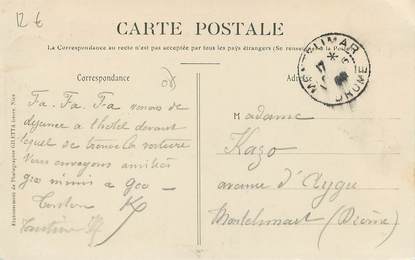 12 €
CARTE POSTALE
La Correspondance au recto n'est pas acceptée par tous les pays étrangers (Se renseigner à la Poste)
MONTÉLIMAR
DROME
Correspondance
Adresse
Fa. Fa. Fa venons de
déjeuner à l'hôtel devant
lequel se trouve la voiture
Vous envoyons amitiés
Madame
Kazo
avenue d'Aygu
Montélimart (Drôme)
Etablissements de Photographie GILETTA frères, Nice